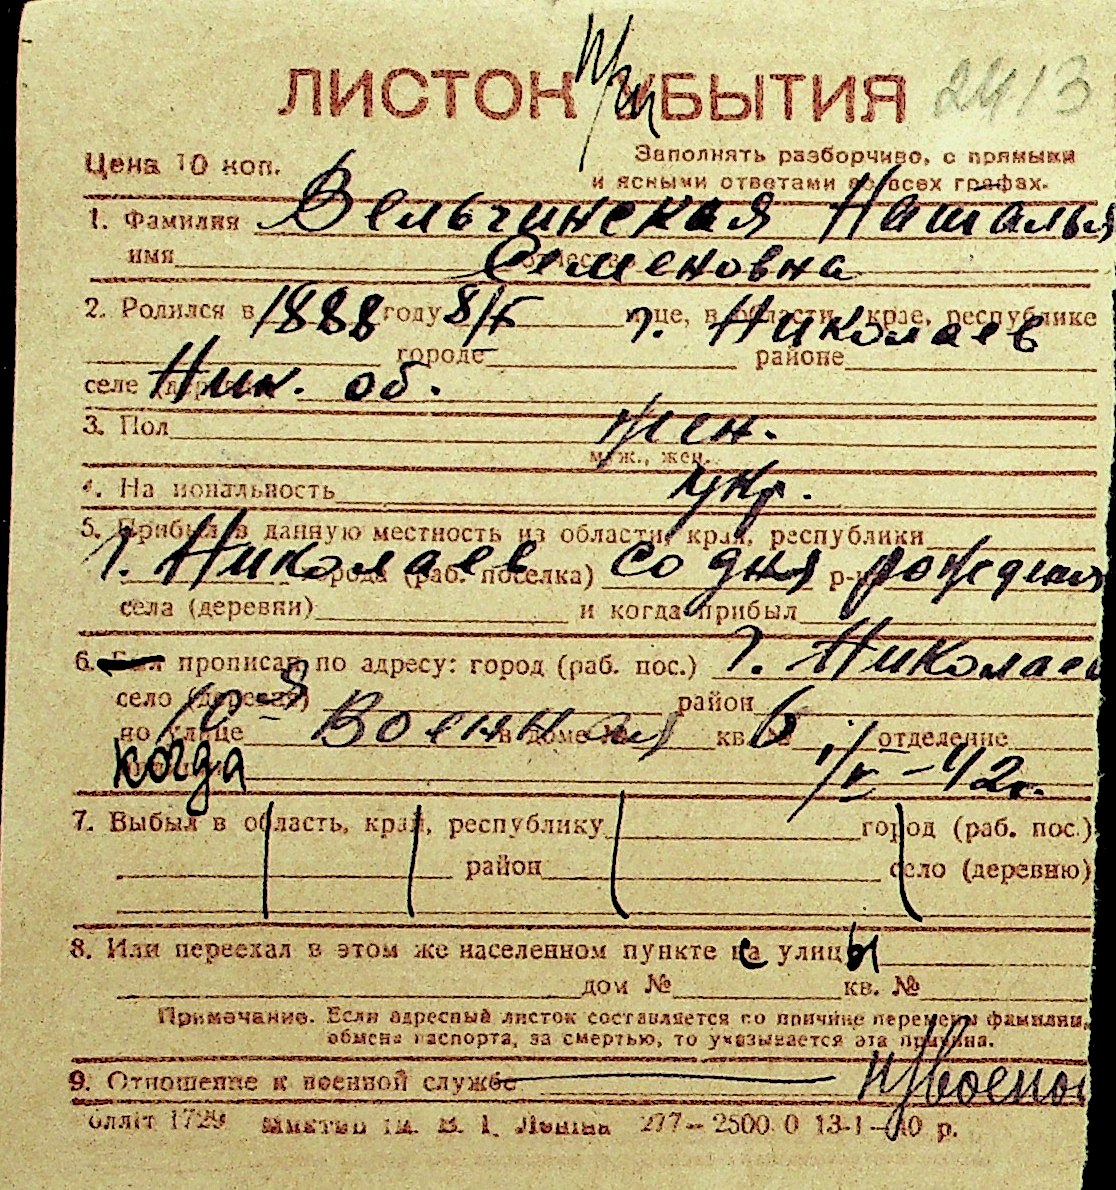 ЛИСТОК УБЫТИЯ 2413
при
Цена 10 коп. Заполнять разборчиво, с прямыми
и ясными ответами во всех графах.
1. Фамилия Вельчинская Наталья
имя отчество Семеновна
2. Родился в 1888 году 8/V г. Николаев це, в области, крае, республике
городе районе
селе (деревне) Ник. об.
3. Пол жен.
муж., жен.
4. На иональность укр.
5. Прибыл в данную местность из области, края, республики
г. Николаев города (раб. поселка) со дня р-на рождения
села (деревни) и когда прибыл
6. Был прописан по адресу: город (раб. пос.) г. Николаев
село (деревня) район
по улице 10-я Военная в доме № 6 кв. № отделение
когда 1/V-42г.
7. Выбыл в область, край, республику город (раб. пос.)
район село (деревню)
8. Или переехал в этом же населенном пункте с улицы
дом № кв. №
Примечание. Если адресный листок составляется по причине перемены фамилии,
обмена паспорта, за смертью, то указывается эта причина.
9. Отношение к военной службе н/военоо
блліт 1729 ім. В. І. Леніна 277–2500.0 13-1-40 р.